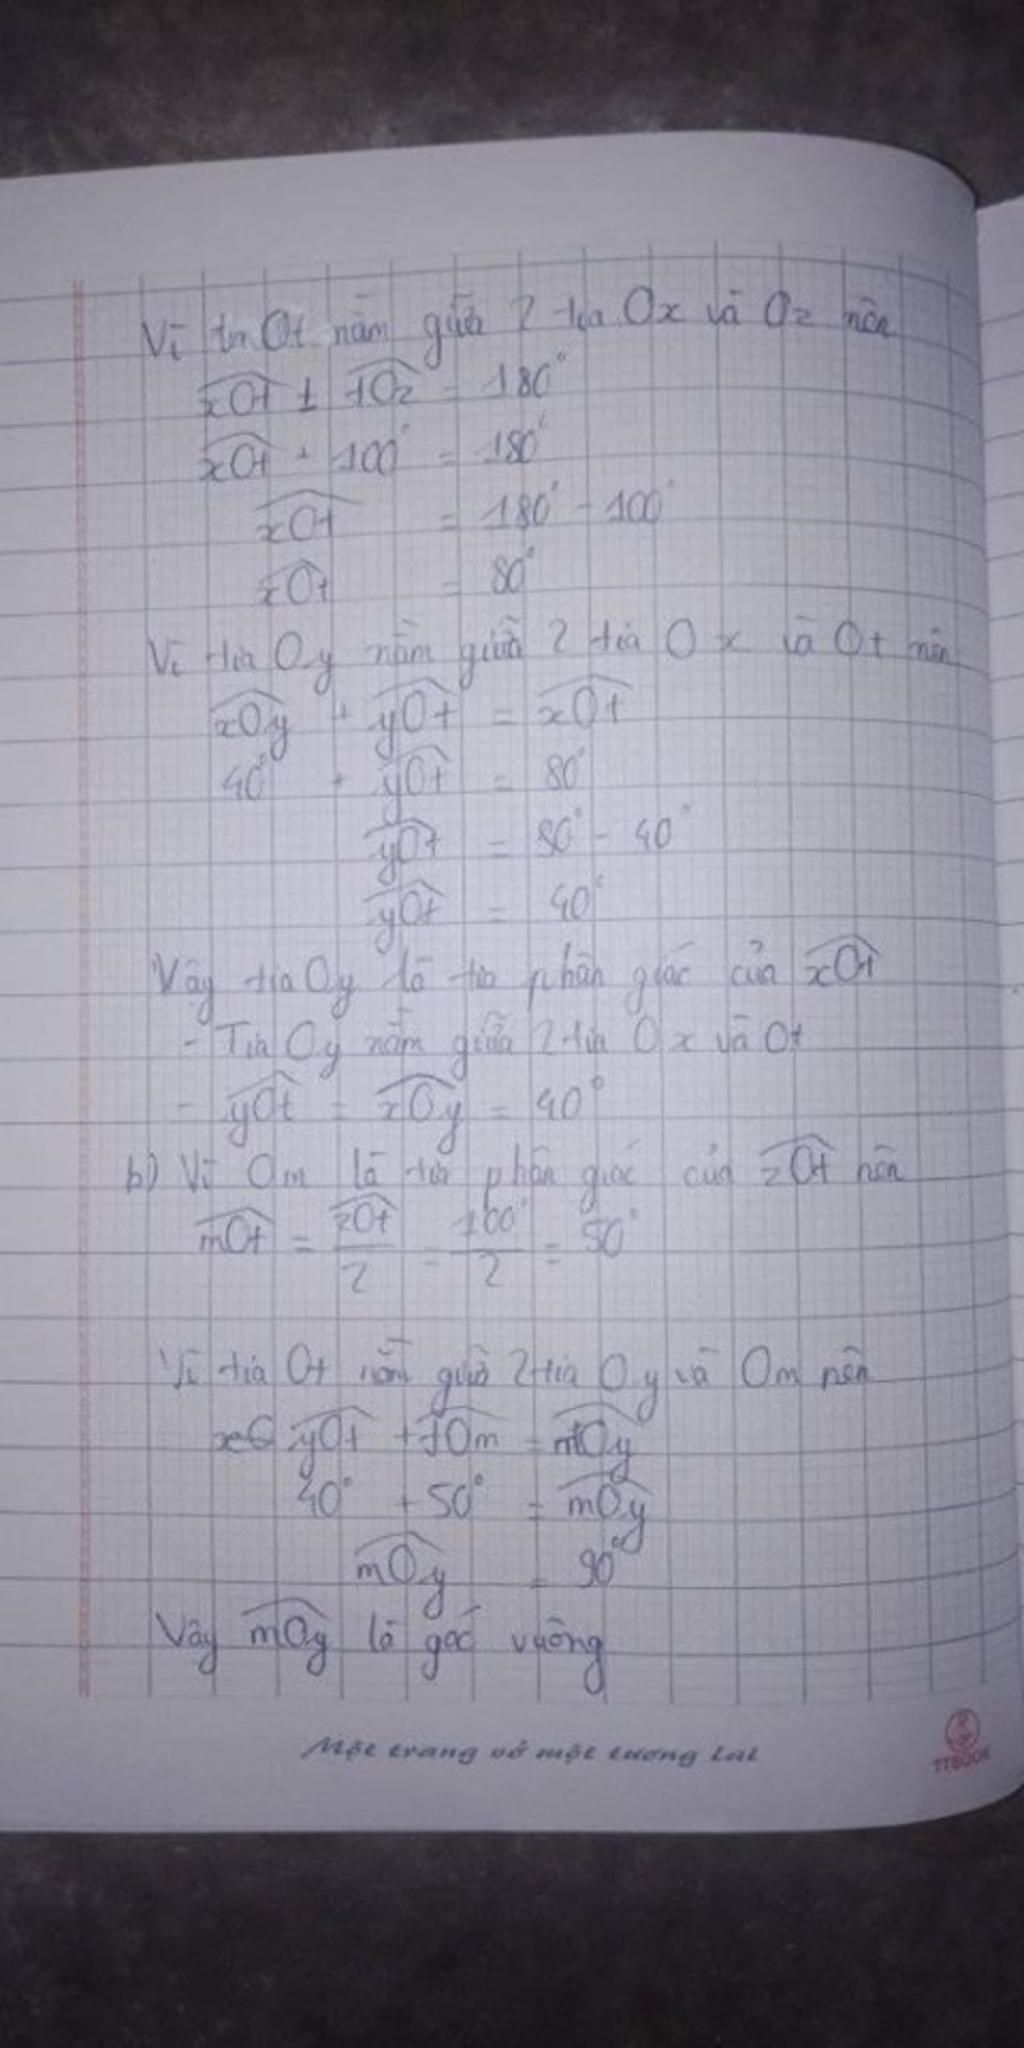 Vì tia Ot nằm giữa 2 tia Ox và Oz nên
xOt + tOz = 180°
xOt + 100° = 180°
xOt = 180° - 100°
xOt = 80°
Vì tia Oy nằm giữa 2 tia Ox và Ot nên
xOy + yOt = xOt
40° + yOt = 80°
yOt = 80° - 40°
yOt = 40°
Vậy tia Oy là tia phân giác của xOt
- Tia Oy nằm giữa 2 tia Ox và Ot
- yOt = xOy = 40°
b) Vì Om là tia phân giác của zOt nên
mOt = zOt/2 = 100°/2 = 50°
Vì tia Ot nằm giữa 2 tia Oy và Om nên
yOt + tOm = mOy
40° + 50° = mOy
mOy = 90°
Vậy mOy là góc vuông
Một trang vở một tương lai
TTBOOK